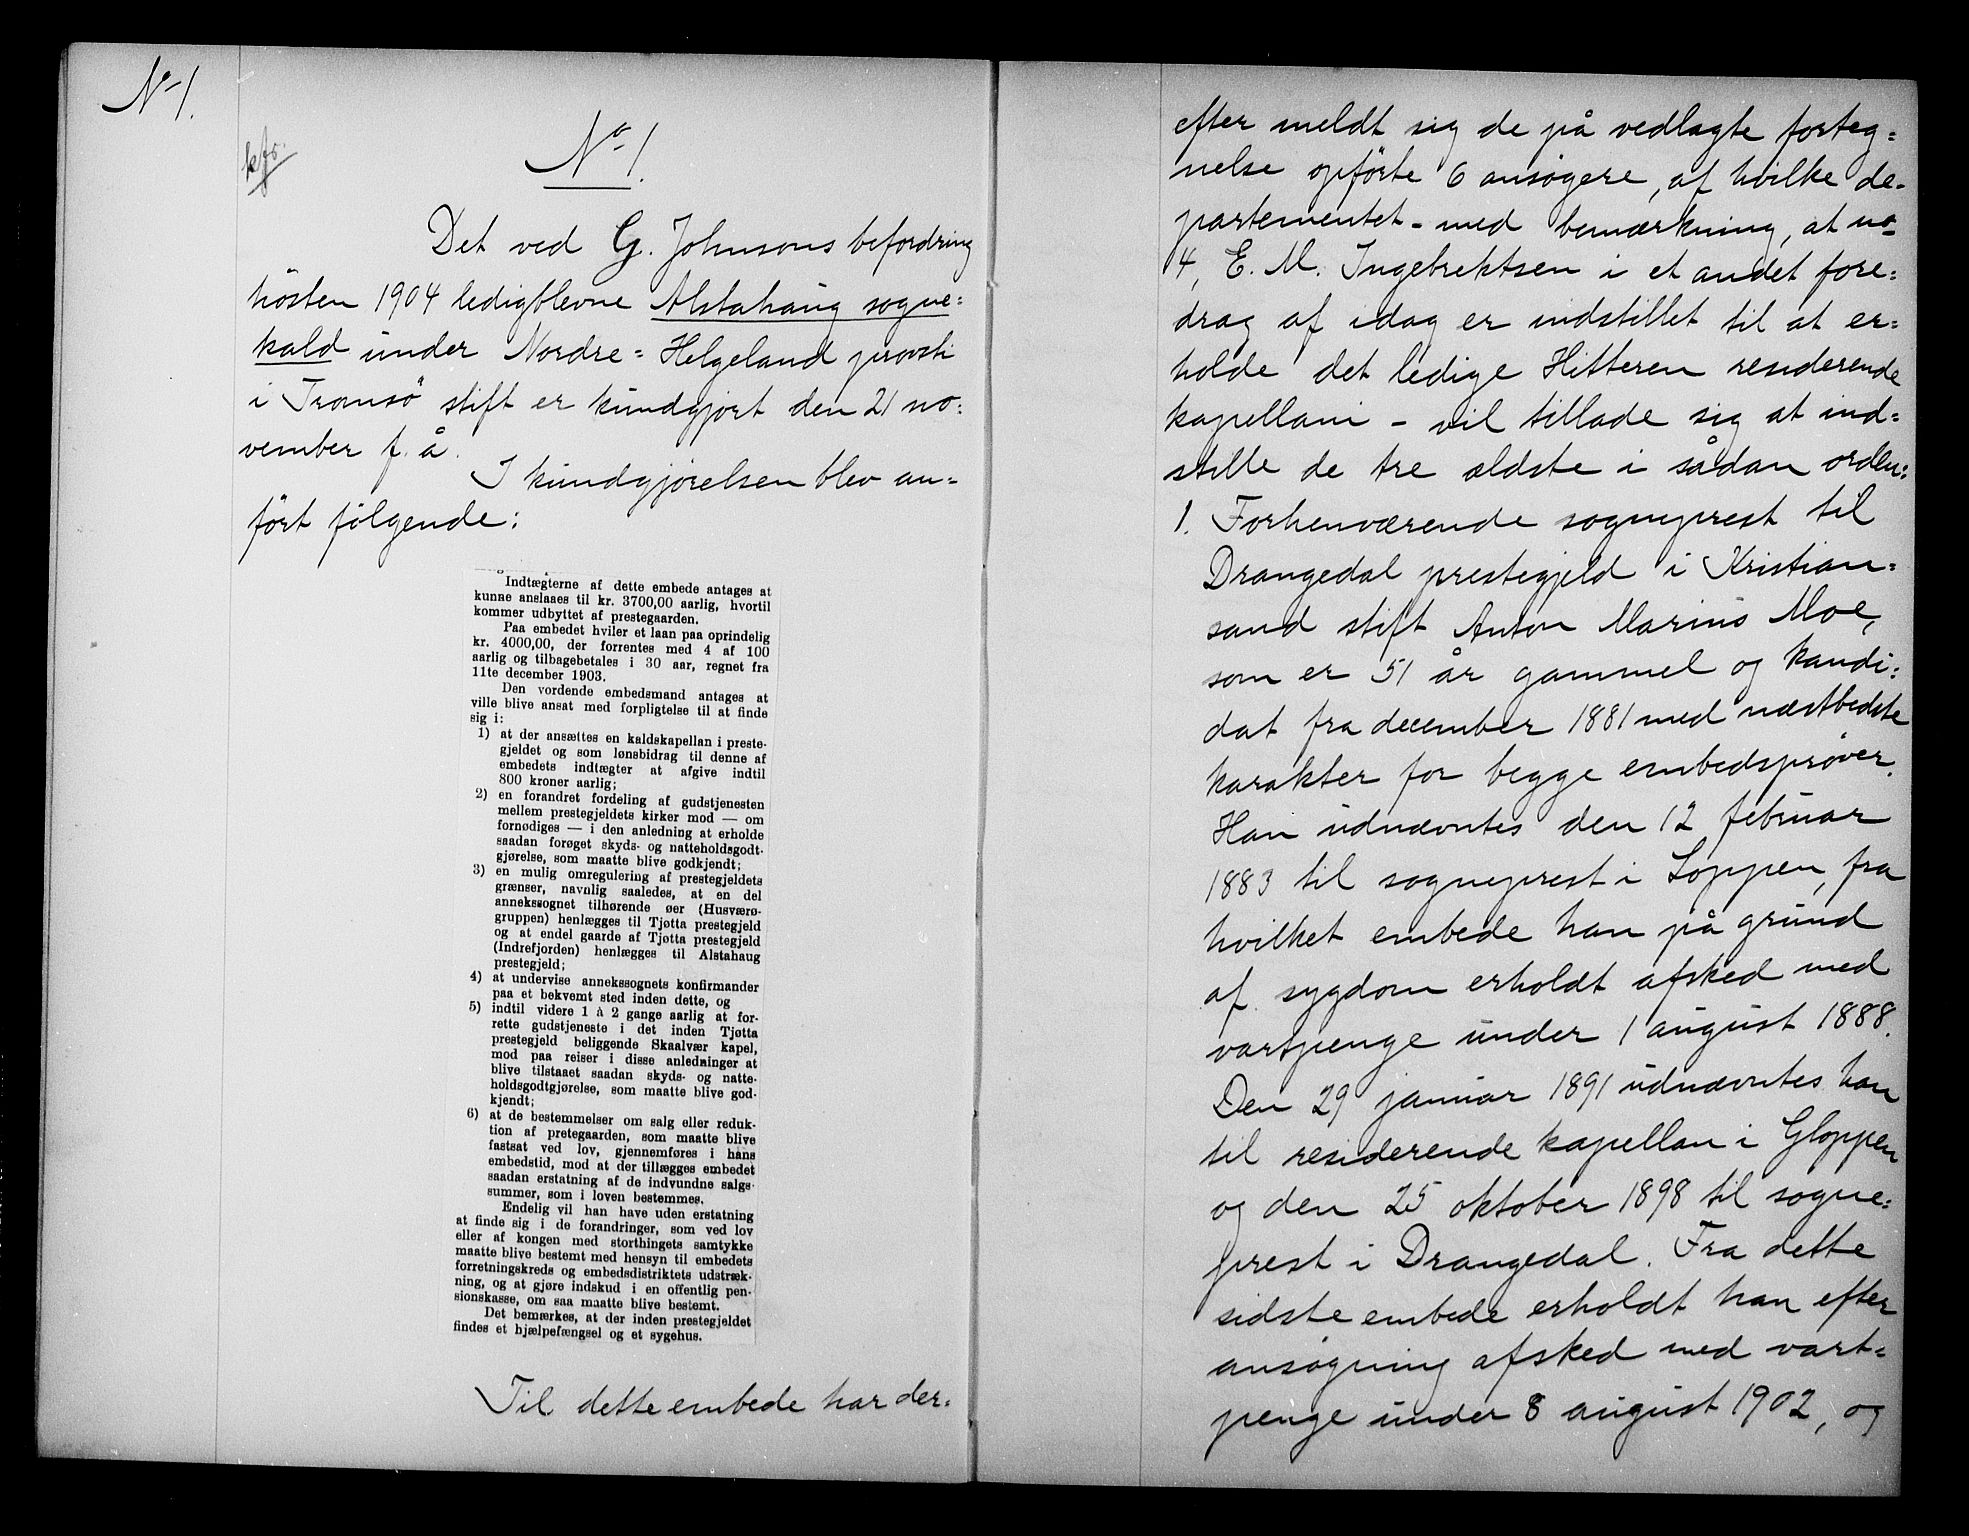 No 1.
kfr.
No 1.
Det ved G. Johnsons befordring
hösten 1904 ledigblevne Alstahaug sogne=
kald under Nordre=Helgeland provsti
i Tromsö stift er kundgjort den 21 no=
vember f. å.
I kundgjørelsen blev an=
ført følgende:
Indtægterne af dette embede antages at
kunne anslaaes til kr. 3700,00 aarlig, hvortil
kommer udbyttet af prestegaarden.
Paa embedet hviler et laan paa oprindelig
kr. 4000,00, der forrentes med 4 af 100
aarlig og tilbagebetales i 30 aar, regnet fra
11te december 1903.
Den vordende embedsmand antages at
ville blive ansat med forpligtelse til at finde
sig i:
1) at der ansættes en kaldskapellan i preste-
gjeldet og som lønsbidrag til denne af
embedets indtægter at afgive indtil
800 kroner aarlig;
2) en forandret fordeling af gudstjenesten
mellem prestegjeldets kirker mod — om
fornødiges — i den anledning at erholde
saadan forøget skyds- og natteholdsgodt-
gjørelse, som maatte blive godkjendt;
3) en mulig omregulering af prestegjeldets
grænser, navnlig saaledes, at en del
annekssognet tilhørende øer (Husværø-
gruppen) henlægges til Tjøtta prestegjeld
og at endel gaarde af Tjøtta prestegjeld
(Indrefjorden) henlægges til Alstahaug
prestegjeld;
4) at undervise annekssognets konfirmander
paa et bekvemt sted inden dette, og
5) indtil videre 1 à 2 gange aarlig at for-
rette gudstjeneste i det inden Tjøtta
prestegjeld beliggende Skaalvær kapel,
mod paa reiser i disse anledninger at
blive tilstaaet saadan skyds- og natte-
holdsgodtgjørelse, som maatte blive god-
kjendt;
6) at de bestemmelser om salg eller reduk-
tion af pretegaarden, som maatte blive
fastsat ved lov, gjennemføres i hans
embedstid, mod at der tillægges embedet
saadan erstatning af de indvundne salgs-
summer, som i loven bestemmes.
Endelig vil han have uden erstatning
at finde sig i de forandringer, som ved lov
eller af kongen med storthingets samtykke
maatte blive bestemt med hensyn til embedets
forretningskreds og embedsdistriktets udstræk-
ning, og at gjøre indskud i en offentlig pen-
sionskasse, om saa maatte blive bestemt.
Det bemærkes, at der inden prestegjeldet
findes et hjælpefængsel og et sygehus.
Til dette embede har der=
efter meldt sig de på vedlagte forteg=
nelse opførte 6 ansøgere, af hvilke de-
partementet - med bemærkning, at no
4, E. M. Ingebrektsen i et andet fore=
drag af idag er indstillet til at er=
holde det ledige Hitteren residerende
kapellani - vil tillade sig at ind=
stille de tre ældste i sådan orden:
1. Forhenværende sogneprest til
Drangedal prestegjeld i Kristian=
sand stift Anton Marius Moe,
som er 51 år gammel og kandi=
dat fra december 1881 med næstbedste
karakter for begge embedsprøver.
Han udnævntes den 12 februar
1883 til sogneprest i Loppen, fra
hvilket embede han på grund
af sygdom erholdt afsked med
vartpenge under 1 august 1888.
Den 29 januar 1891 udnævntes han
til residerende kapellan i Gloppen
og den 25 oktober 1898 til sogne=
prest i Drangedal. Fra dette
sidste embede erholdt han efter
ansøgning afsked med vart=
penge under 8 august 1902, og